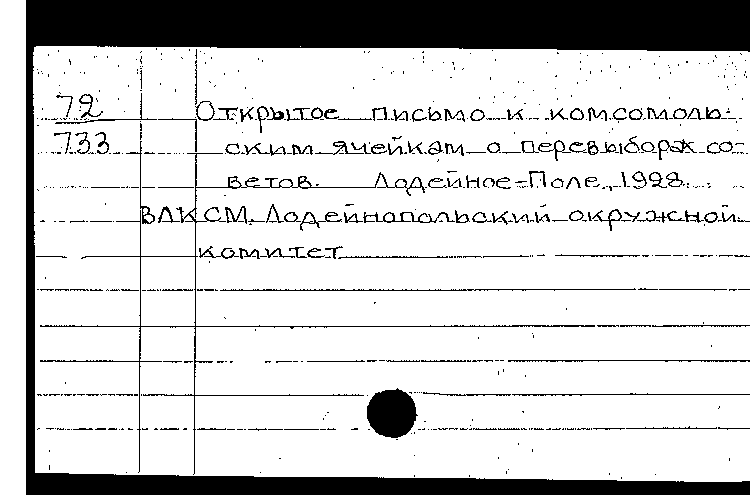 72
733
Открытое письмо к комсомоль-
ским ячейкам о перевыборах со-
ветов. Лодейное-Поле, 1928.
ВЛКСМ. Лодейнопольский окружной
комитет